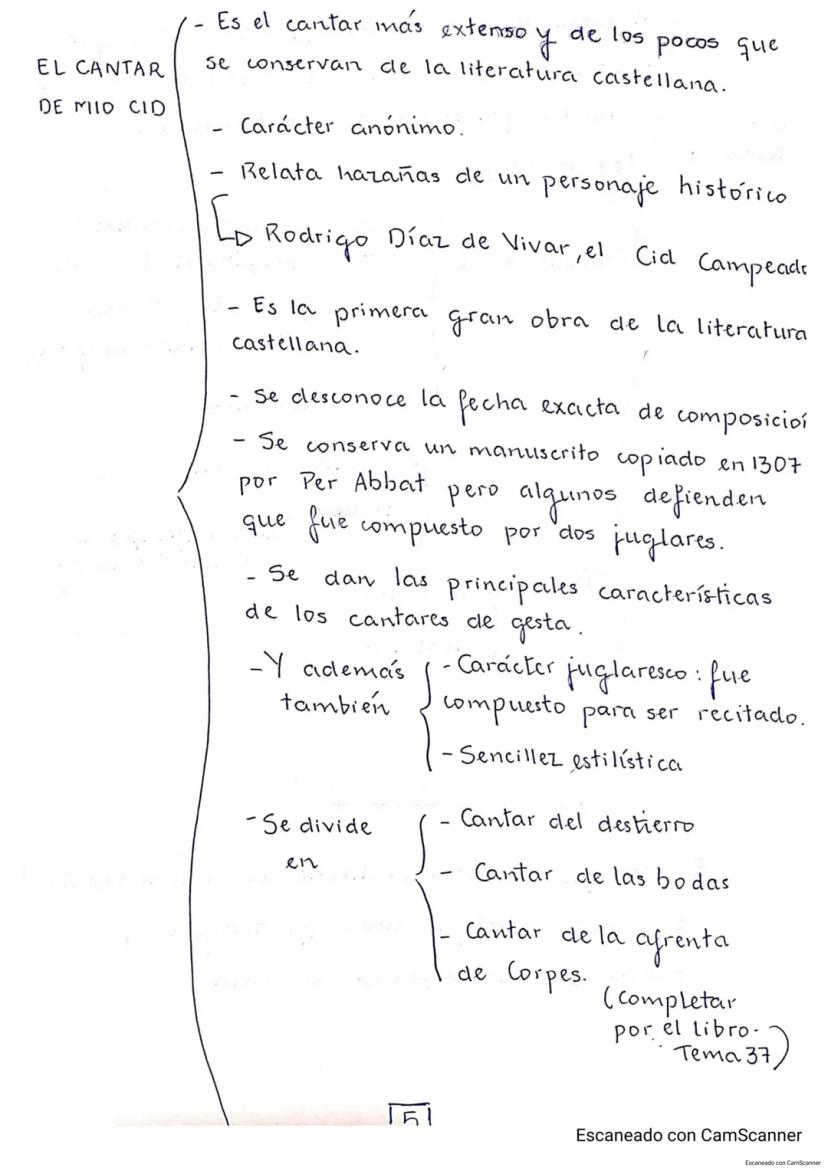 EL CANTAR
DE MIO CID
- Es el cantar más extenso y de los pocos que
se conservan de la literatura castellana.
- Carácter anónimo.
- Relata hazañas de un personaje histórico
Rodrigo Díaz de Vivar, el Cid Campeado
- Es la primera gran obra de la literatura
castellana.
- Se desconoce la fecha exacta de composició
- Se conserva un manuscrito copiado en 1307
por Per Abbat pero algunos defienden
que fue compuesto por dos juglares.
- Se dan las principales características
de los cantares de gesta.
- Y además
también
- Carácter juglaresco: fue
compuesto para ser recitado.
- Sencillez estilística
- Se divide
en
- Cantar del destierro
- Cantar de las bodas
- Cantar de la afrenta
de Corpes.
(completar
por el libro.
Tema 37)
5
Escaneado con CamScanner
Escaneado con CamScanner